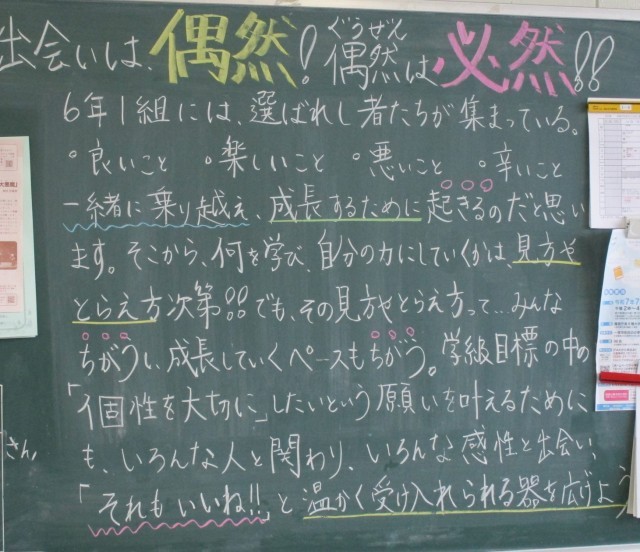 出会いは、偶然！偶然は必然!!
ぐうぜん
6年1組には、選ばれし者たちが集まっている。
°良いこと °楽しいこと °悪いこと °辛いこと
一緒に乗り越え、成長するために起きるのだと思い
ます。そこから、何を学び、自分の力にしていくかは、見方や
とらえ方次第!!でも、その見方やとらえ方って…みんな
ちがうし、成長していくペースもちがう。学級目標の中の
「個性を大切に」したいという願いを叶えるために
も、いろんな人と関わり、いろんな感性と出会い、
「それもいいね!!」と温かく受け入れられる器を広げよう
さん